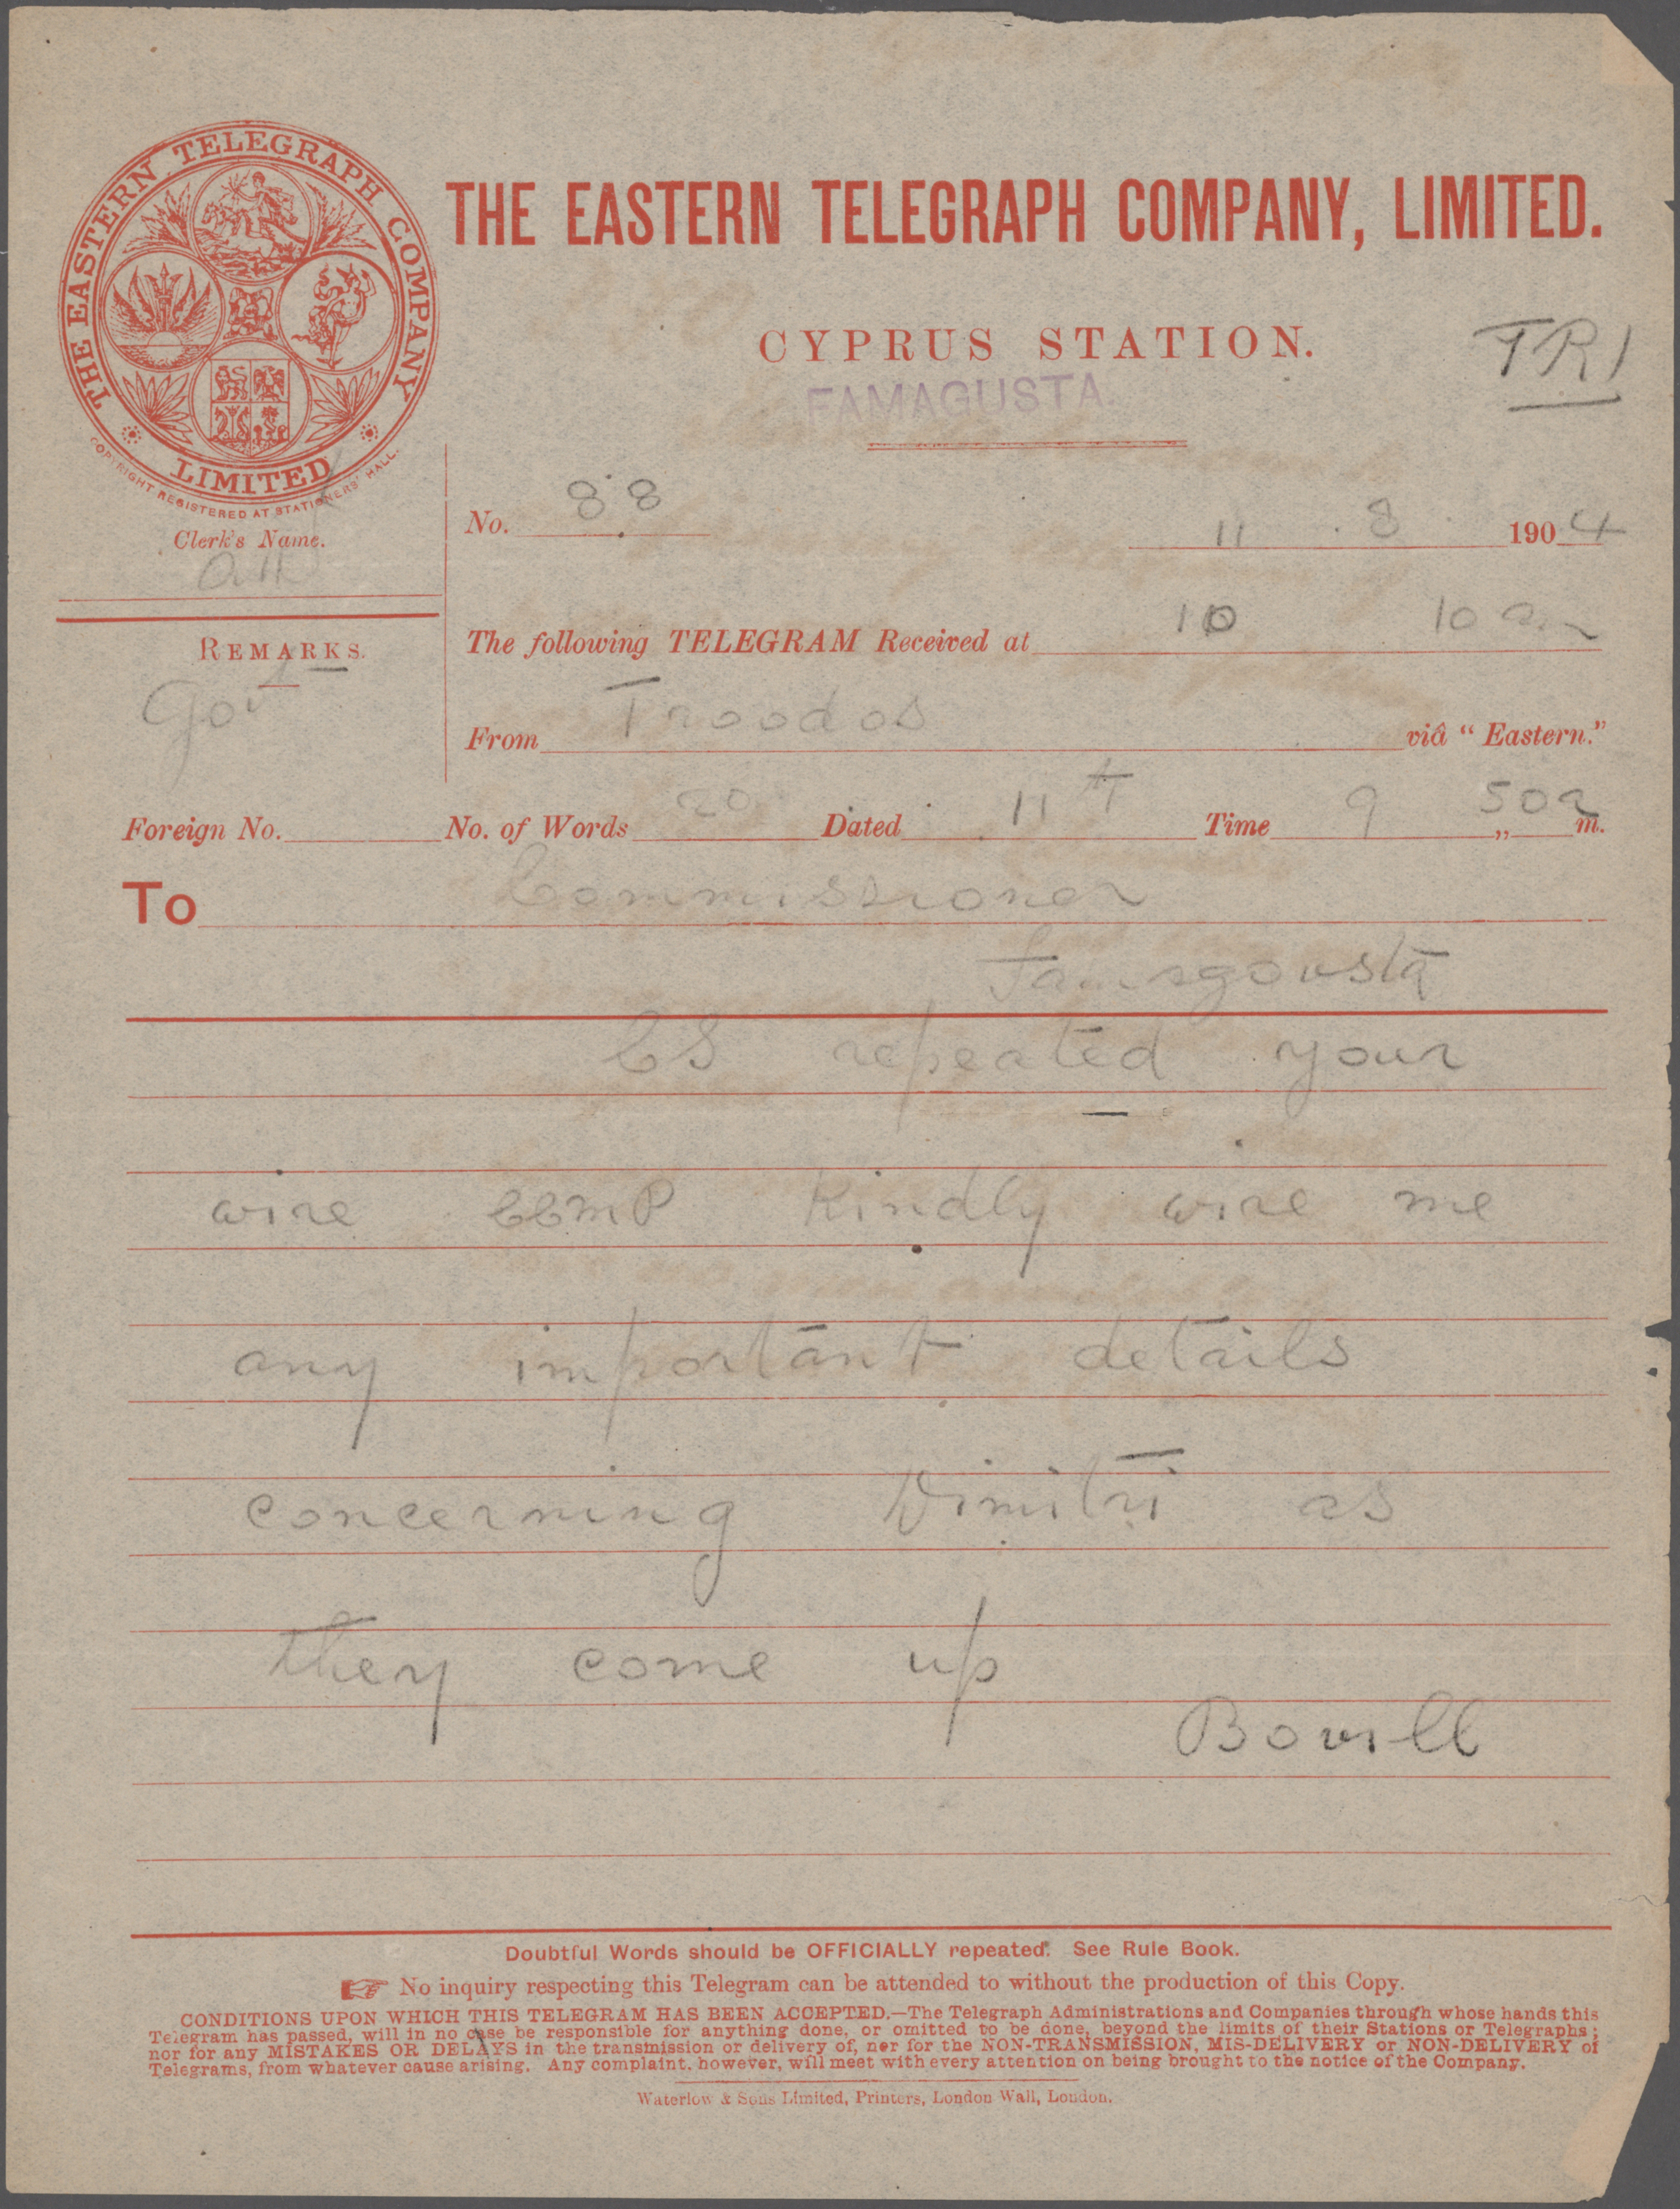 THE EASTERN TELEGRAPH COMPANY
LIMITED
COPYRIGHT REGISTERED AT STATIONERS' HALL.
THE EASTERN TELEGRAPH COMPANY, LIMITED.
CYPRUS STATION.
FAMAGUSTA.
TRI
Clerk's Name.
No. 88 11 . 8 1904
REMARKS.
Govt
The following TELEGRAM Received at 10 10 am
From Troodos viâ “Eastern.”
Foreign No. No. of Words 20 Dated 11th Time 9 „ 50 a m.
To Commissioner
Famagousta
CS repeated your
wire CCMP Kindly wire me
any important details
concerning Dimitri as
they come up
Bovill
Doubtful Words should be OFFICIALLY repeated. See Rule Book.
☞ No inquiry respecting this Telegram can be attended to without the production of this Copy.
CONDITIONS UPON WHICH THIS TELEGRAM HAS BEEN ACCEPTED.—The Telegraph Administrations and Companies through whose hands this
Telegram has passed, will in no case be responsible for anything done, or omitted to be done, beyond the limits of their Stations or Telegraphs;
nor for any MISTAKES OR DELAYS in the transmission or delivery of, nor for the NON-TRANSMISSION, MIS-DELIVERY or NON-DELIVERY of
Telegrams, from whatever cause arising. Any complaint, however, will meet with every attention on being brought to the notice of the Company.
Waterlow & Sons Limited, Printers, London Wall, London.